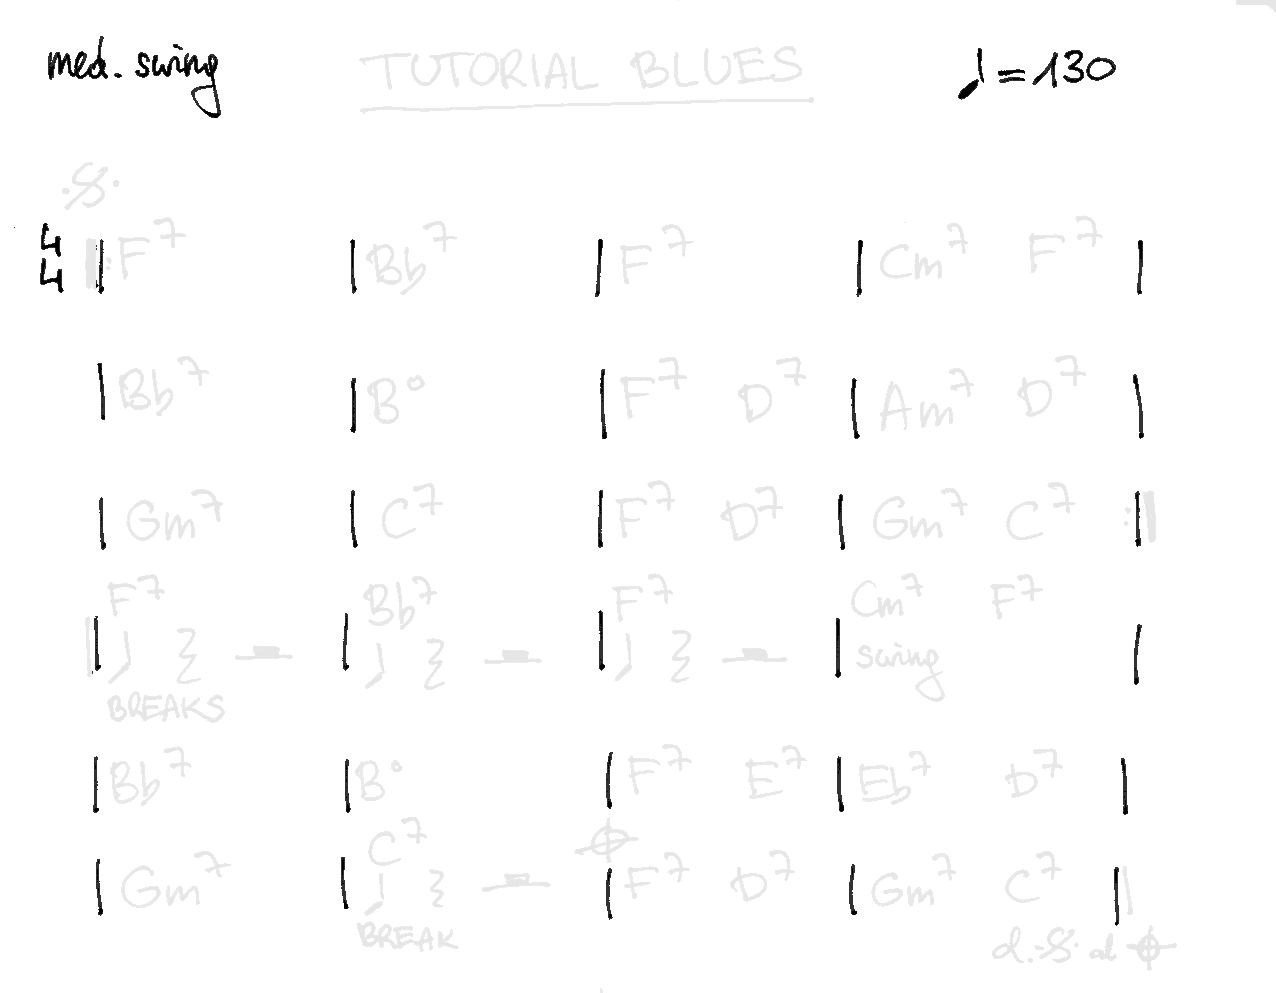 med. swing TUTORIAL BLUES ♩=130
.S.
4/4 ||: F7 | Bb7 | F7 | Cm7 F7 |
| Bb7 | B° | F7 D7 | Am7 D7 |
| Gm7 | C7 | F7 D7 | Gm7 C7 :||
F7 Bb7 F7 Cm7 F7
swing
BREAKS
| Bb7 | B° | F7 E7 | Eb7 D7 |
C7
| Gm7 | | F7 D7 | Gm7 C7 ||
BREAK d.S. al